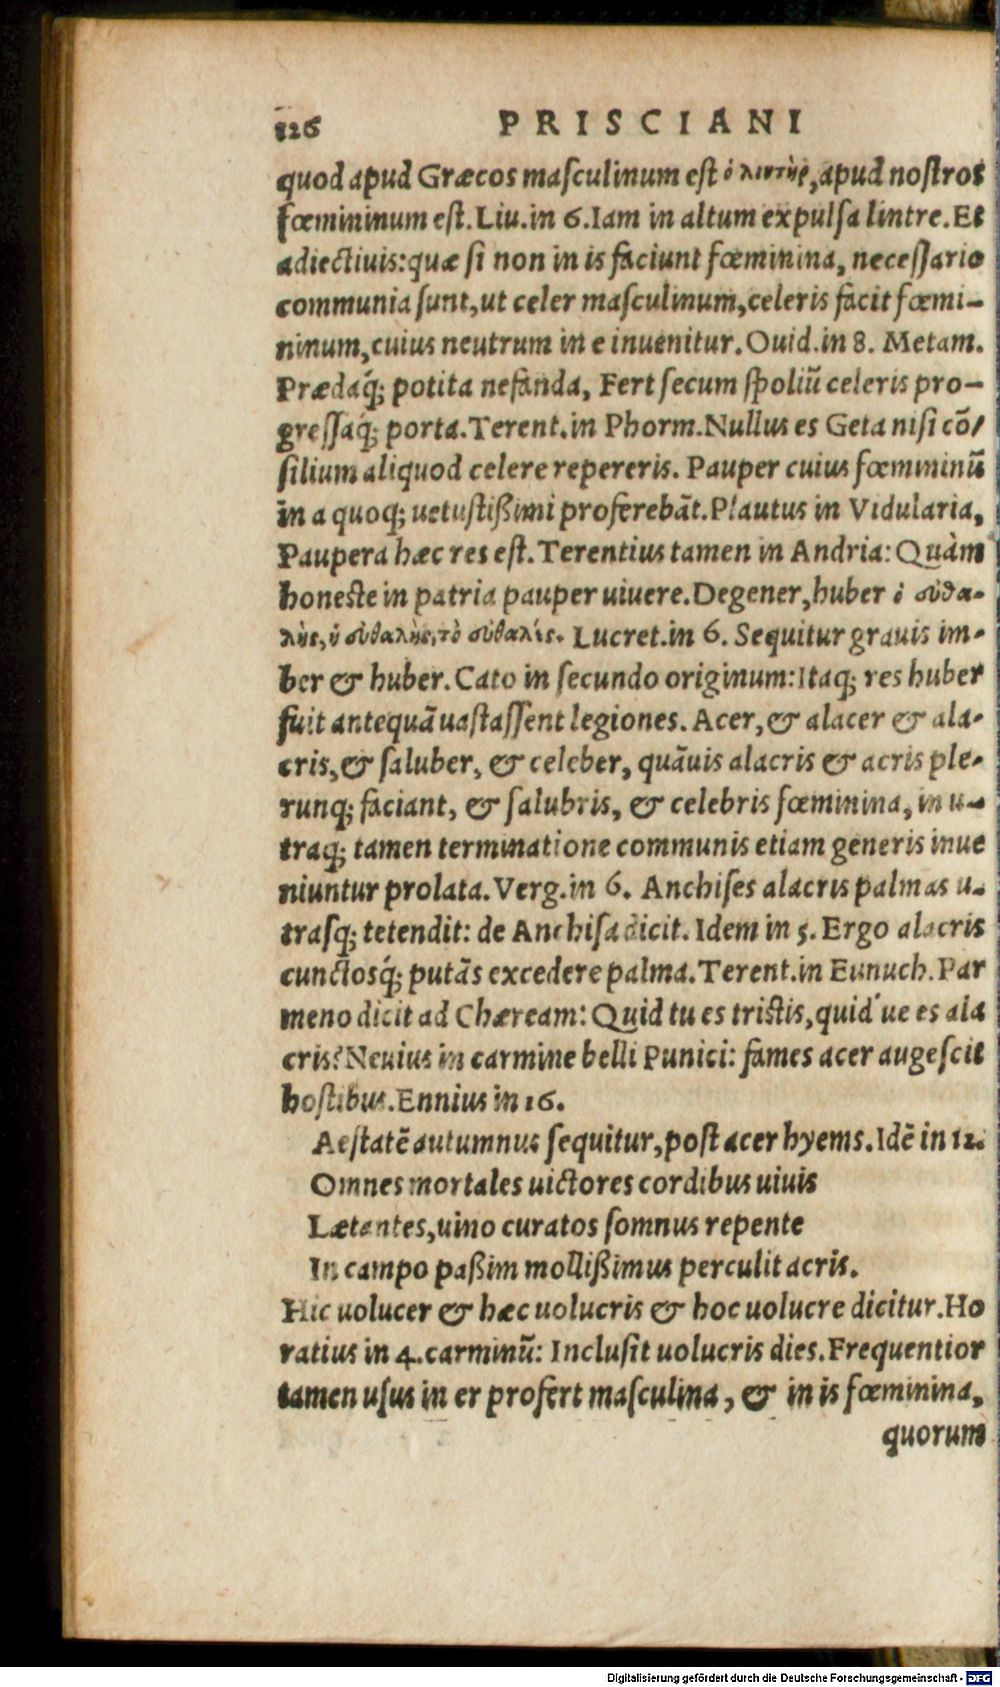 126 PRISCIANI
quod apud Græcos masculinum est ὁ λιντὴρ, apud nostros
fœmininum est. Liu. in 6. Iam in altum expulsa lintre. Et
adiectiuis: quæ si non in is faciunt fœminina, necessario
communia sunt, ut celer masculinum, celeris facit fœmi-
ninum, cuius neutrum in e inuenitur. Ouid. in 8. Metam.
Prædaq́; potita nefanda, Fert secum spoliũ celeris pro-
gressaq́; porta. Terent. in Phorm. Nullus es Geta nisi cõ/
silium aliquod celere repereris. Pauper cuius fœmininũ
in a quoq; uetustißimi proferebãt. Plautus in Vidularia,
Paupera hæc res est. Terentius tamen in Andria: Quàm
honeste in patria pauper uiuere. Degener, huber ὁ οὐθα-
λὴς, ἡ οὐθαλὴς, τὸ οὐθαλὲς. Lucret. in 6. Sequitur grauis im-
ber & huber. Cato in secundo originum: Itaq; res huber
fuit antequã uastassent legiones. Acer, & alacer & ala-
cris, & saluber, & celeber, quãuis alacris & acris ple-
runq; faciant, & salubris, & celebris fœminina, in u-
traq; tamen terminatione communis etiam generis inue
niuntur prolata. Verg. in 6. Anchises alacris palmas u-
trasq; tetendit: de Anchisa dicit. Idem in 5. Ergo alacris
cunctosq́; putãs excedere palma. Terent. in Eunuch. Par
meno dicit ad Chæream: Quid tu es tristis, quid'ue es ala
cris? Neuius in carmine belli Punici: fames acer augescit
hostibus. Ennius in 16.
Aestatẽ autumnus sequitur, post acer hyems. Idẽ in 12.
Omnes mortales uictores cordibus uiuis
Lætantes, uino curatos somnus repente
In campo paßim mollißimus perculit acris.
Hic uolucer & hæc uolucris & hoc uolucre dicitur. Ho
ratius in 4. carminũ: Inclusit uolucris dies. Frequentior
tamen usus in er profert masculina, & in is fœminina,
quorum
Digitalisierung gefördert durch die Deutsche Forschungsgemeinschaft - DFG